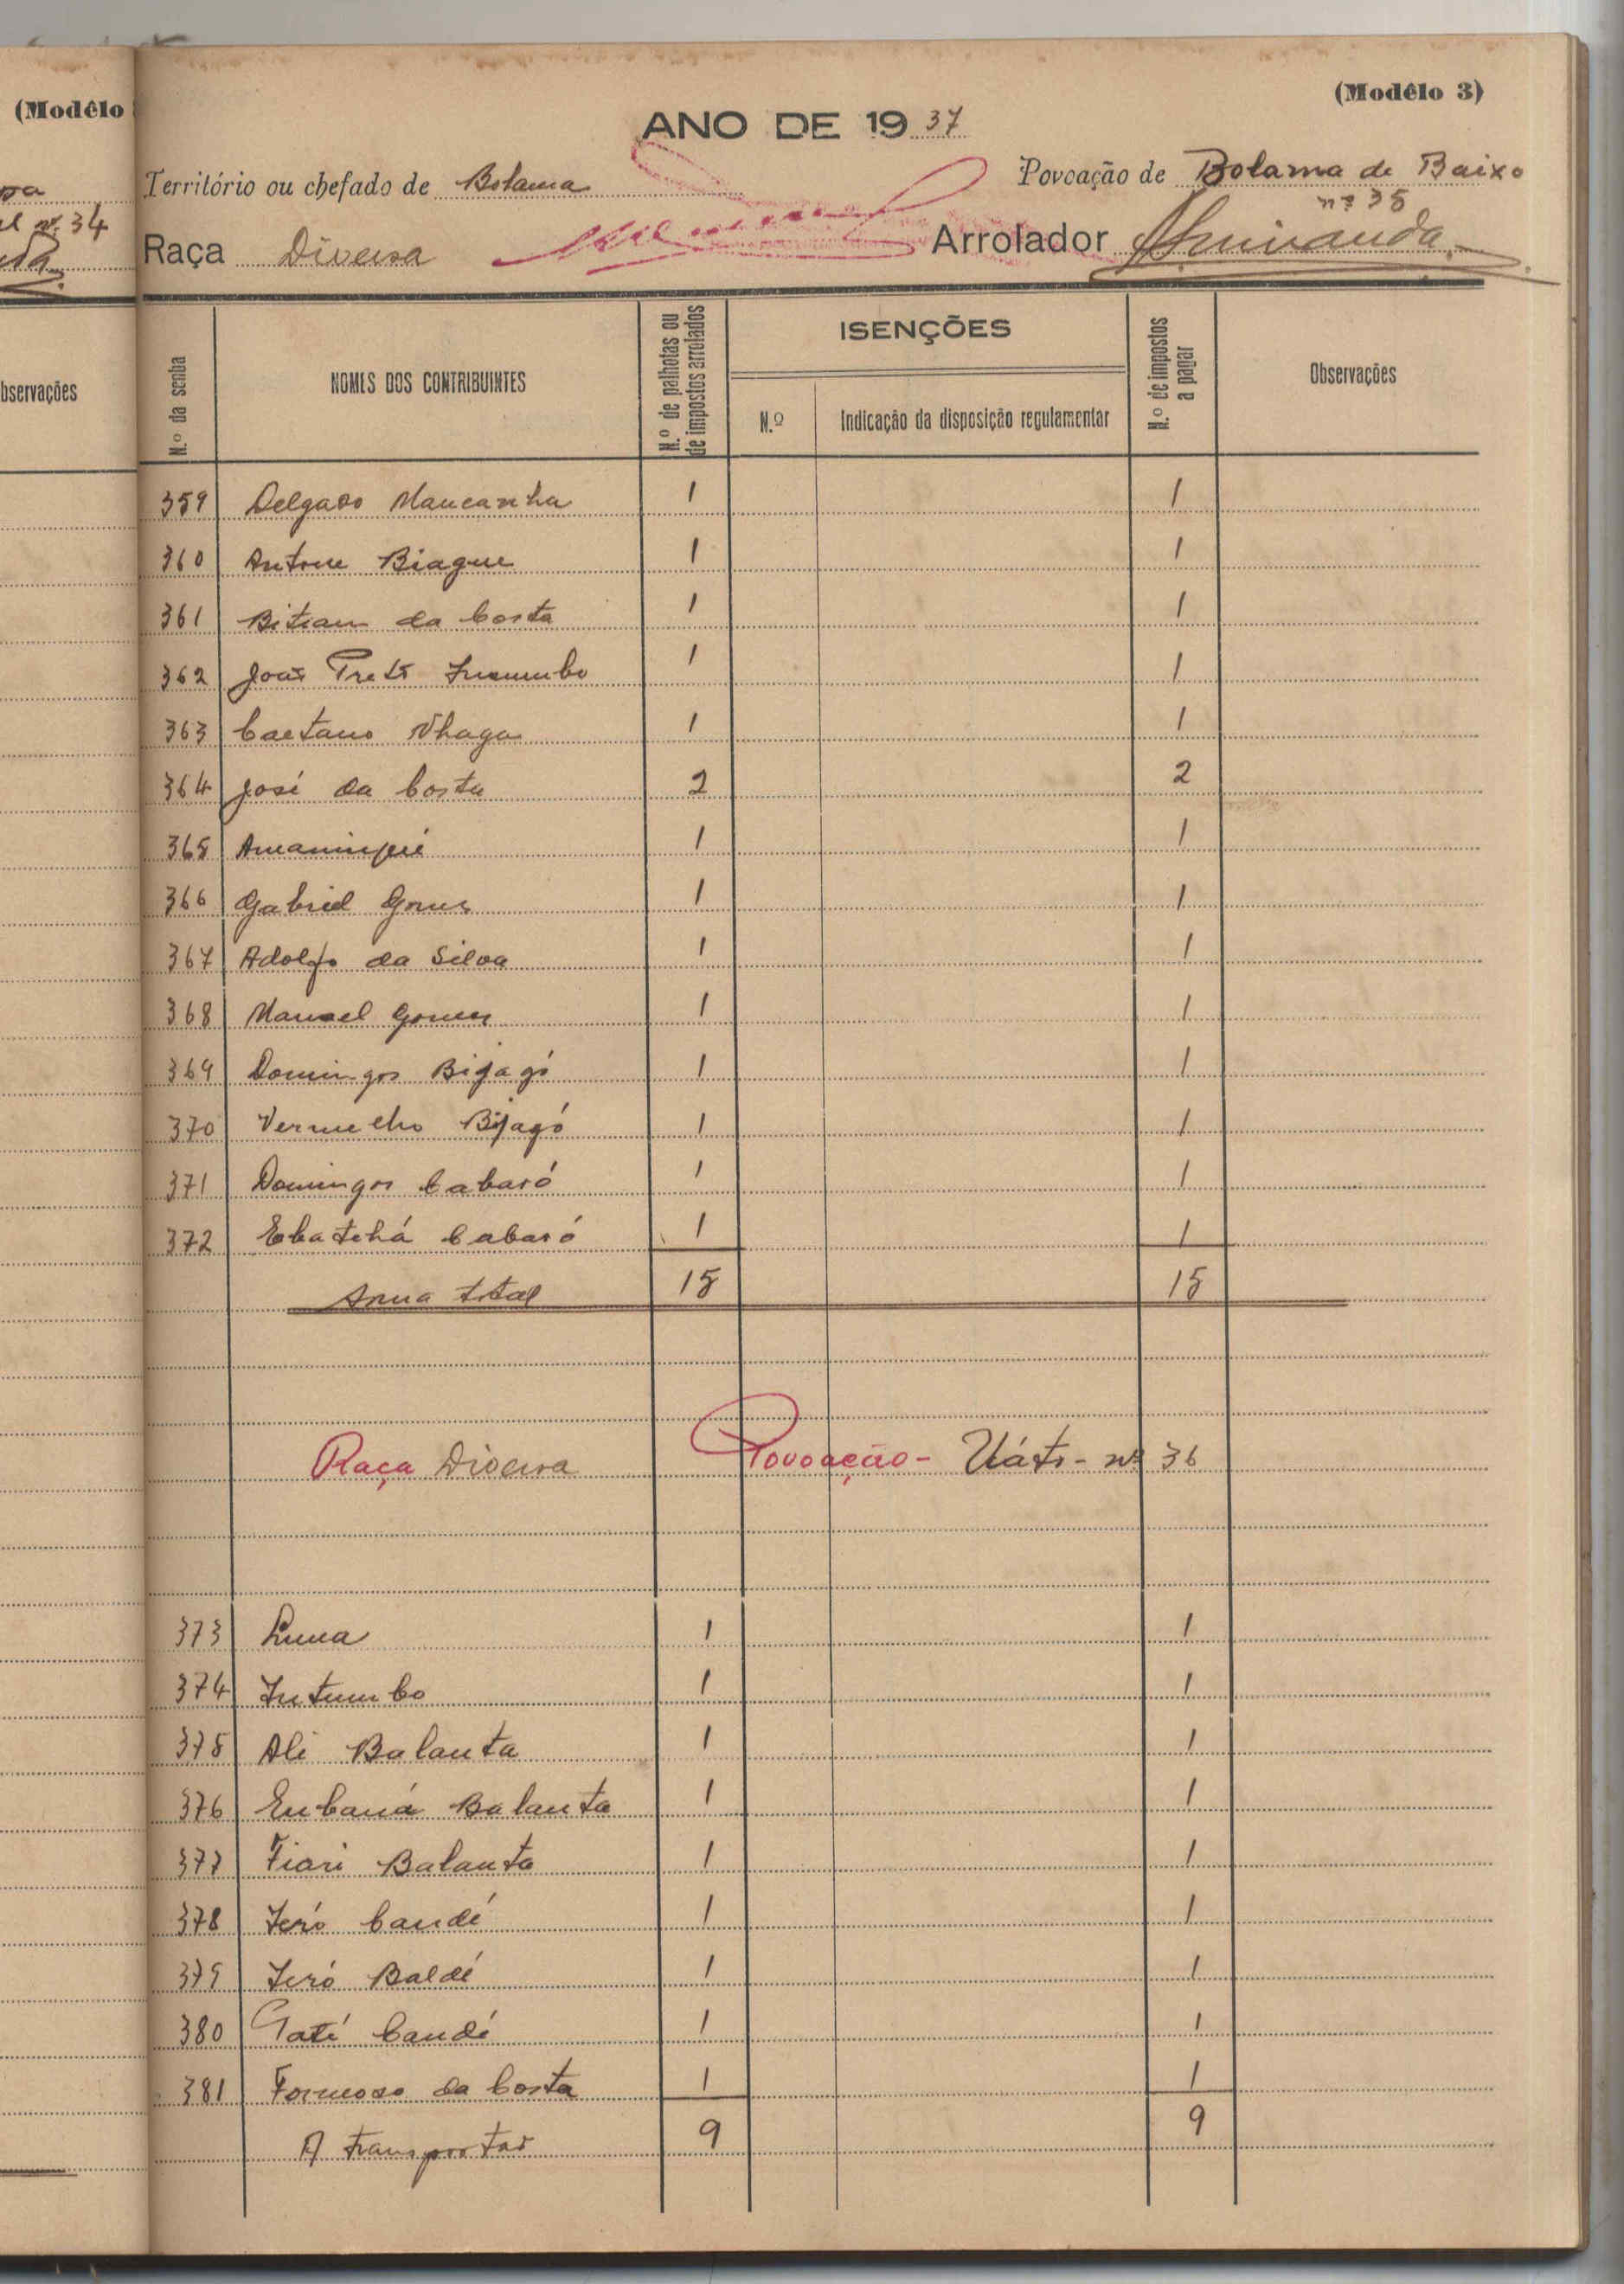 (Modêlo
nº 34
bservações
(Modêlo 3)
ANO DE 1937
Território ou chefado de Bolama
Povoação de Bolama de Baixo
nº 35
Raça Diversa
Arrolador
N.º da senha
NOMES DOS CONTRIBUINTES
N.º de palhotas ou de impostos arrolados
ISENÇÕES
N.º
Indicação da disposição regulamentar
N.º de impostos a pagar
Observações
359 Delgado Mancanha 1 1
360 Antone Biague 1 1
361 da Costa 1 1
362 João Preto 1 1
363 Caetano Nhaga 1 1
364 José da Costa 2 2
365 1 1
366 Gabriel Gomes 1 1
367 Adolfo da Silva 1 1
368 Manuel Gomes 1 1
369 Domingos Bijagó 1 1
370 Vermelho Bijagó 1 1
371 Domingos Cabaró 1 1
372 Ebatchá Cabaró 1 1
Soma total 15 15
Raça Diversa Povoação - Uáto - nº 36
373 1 1
374 Intumbo 1 1
375 Ali Balanta 1 1
376 Enbaná Balanta 1 1
377 Fiari Balanta 1 1
378 Ieró Candé 1 1
379 Ieró Baldé 1 1
380 Paté Candé 1 1
381 Formoso da Costa 1 1
A transportar 9 9